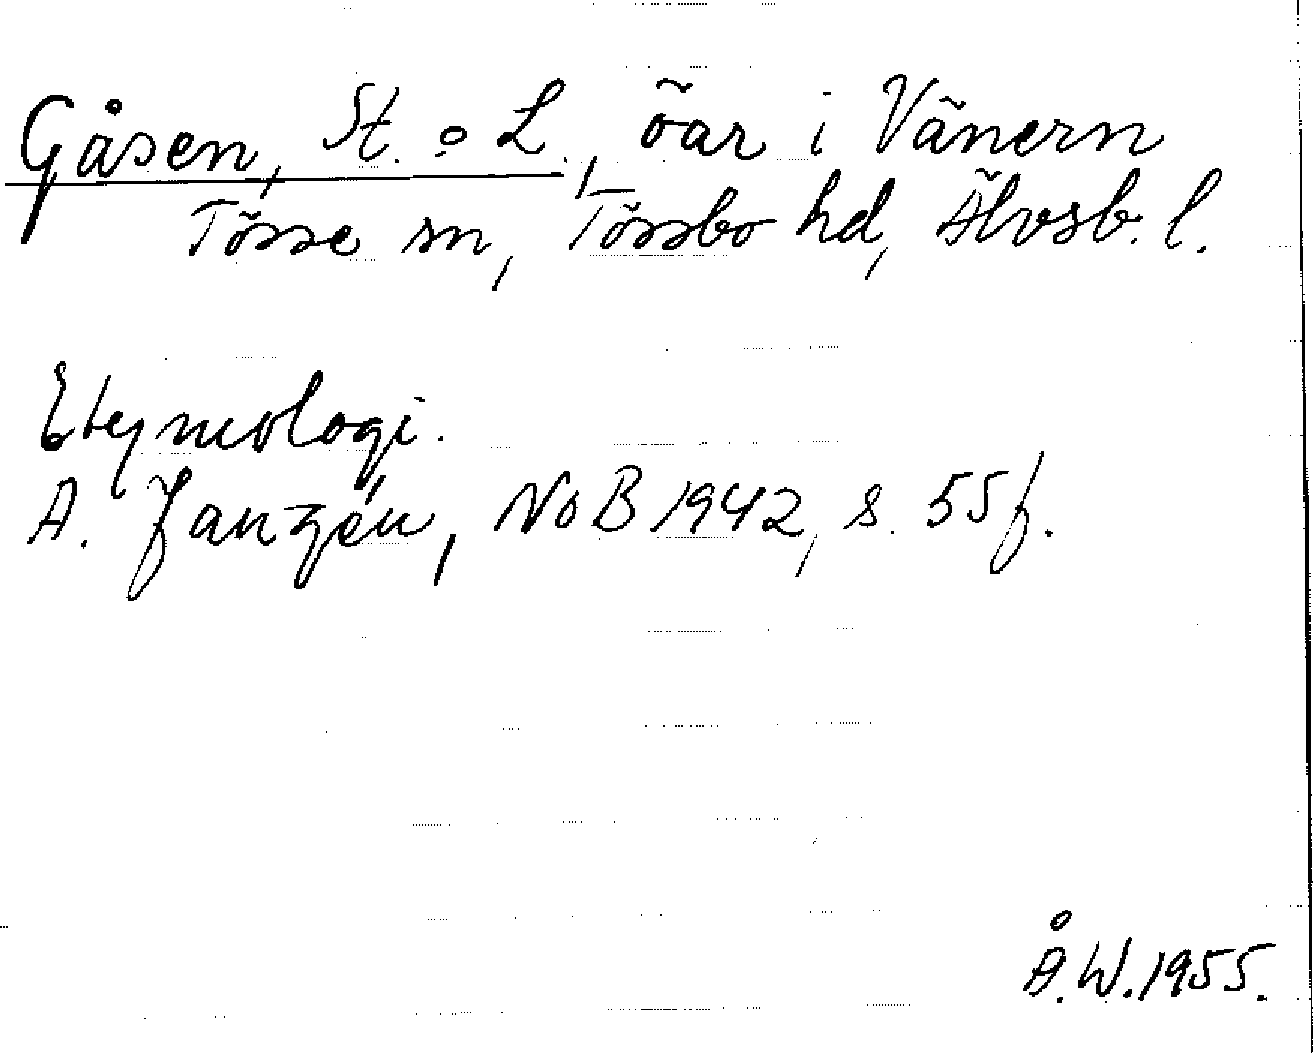 Gåsen, St. o L., öar i Vänern
Tösse sn, Tössbo hd, Älvsb. l.
Etymologi.
A. Janzén, NoB 1942, s. 55 f.
Å.W.1955.